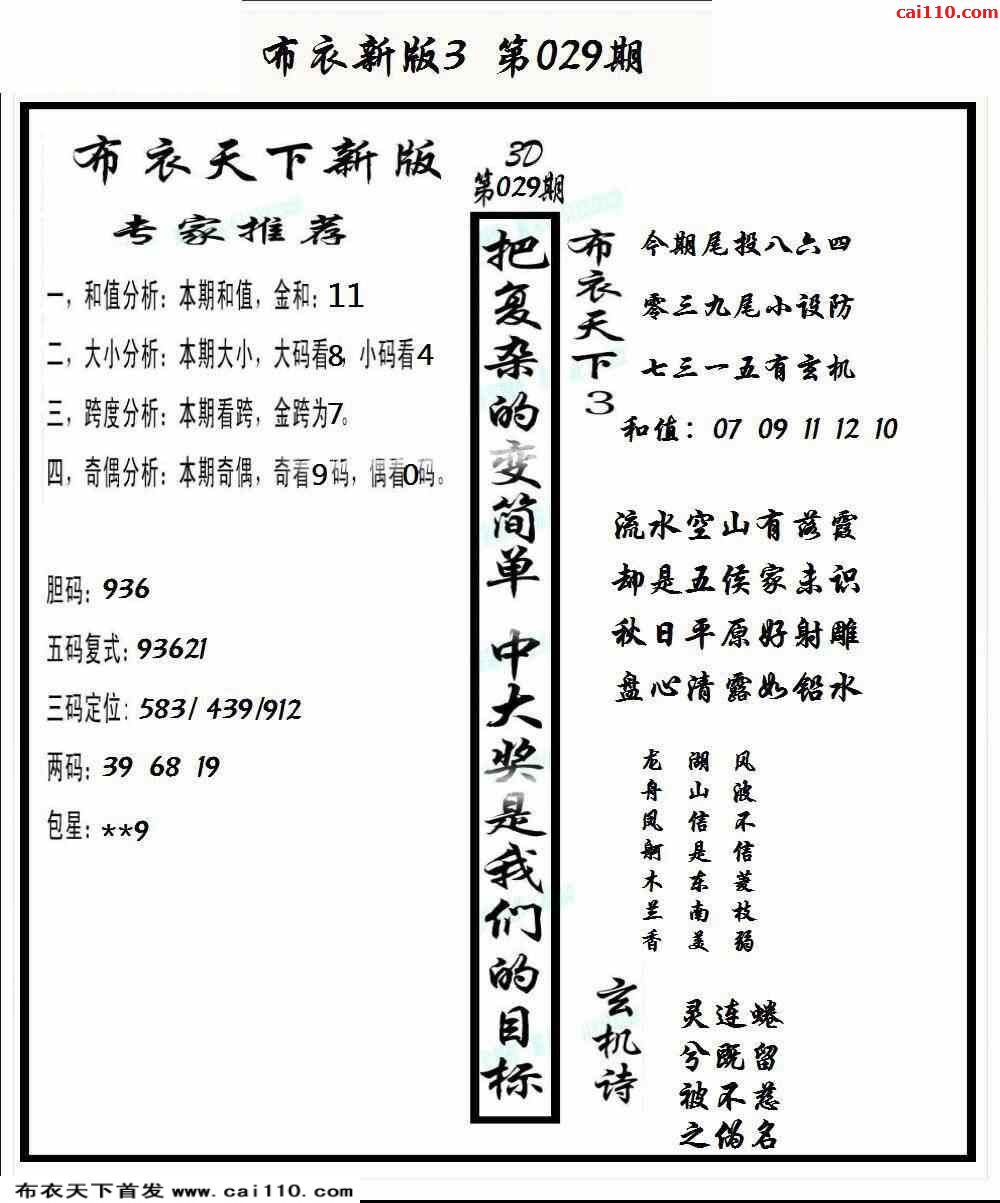 cai110.com
布衣新版3 第029期
布衣天下新版
专家推荐
一，和值分析：本期和值，金和：11
二，大小分析：本期大小，大码看8，小码看4
三，跨度分析：本期看跨，金跨为7。
四，奇偶分析：本期奇偶，奇看9码，偶看0码。
胆码：936
五码复式：93621
三码定位：583/ 439/912
两码：39 68 19
包星：**9
3D
第029期
把复杂的变简单 中大奖是我们的目标
布衣天下3
今期尾投八六四
零三九尾小设防
七三一五有玄机
和值：07 09 11 12 10
流水空山有落霞
却是五侯家未识
秋日平原好射雕
盘心清露如铅水
龙舟凤舸木兰香
湖山信是东南美
风波不信菱枝弱
玄机诗
灵连蜷
兮既留
被不慈
之伪名
布衣天下首发 www.cai110.com